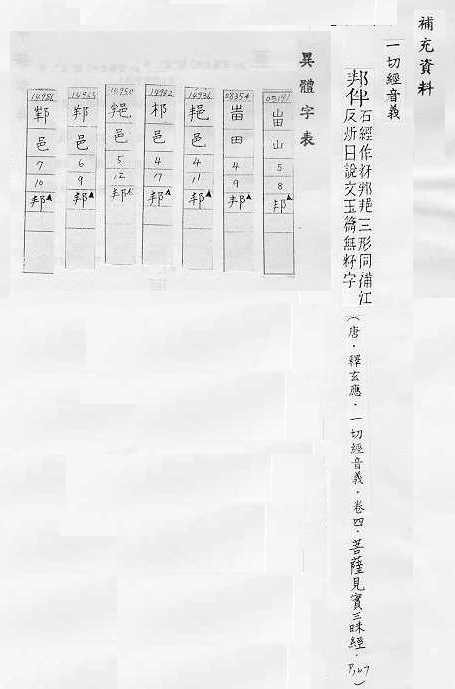 補充資料
一切經音義
邦伴
石經作𥞑邦邫三形同補江
反所日說文玉篇無籽字
(唐．釋玄應．一切經音義．卷四．菩薩見實三昧經．P,67)
異體字表
05191 山 5 8 邦▲
08354 田 4 9 邦▲
14936 邫 邑 4 11 邦▲
14902 邑 4 7 邦▲
14950 邑 5 12 邦▲
14945 邑 6 9 邦▲
14956 邑 7 10 邦▲